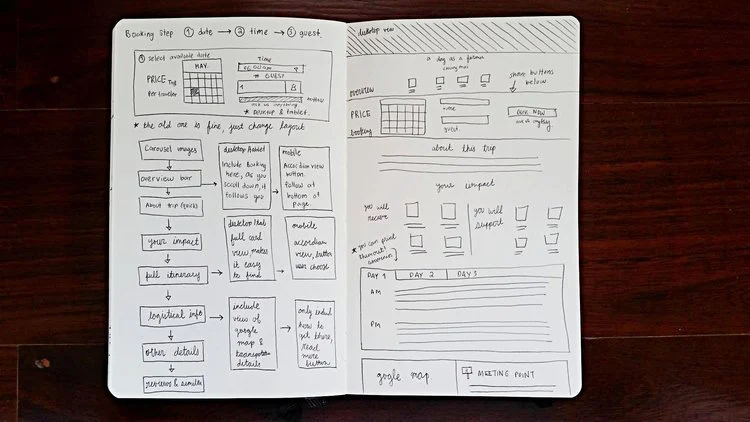 Booking Step ① date → ② time → ③ guest.
① select available date
MAY
PRICE
Per traveller
Time
* GUEST
1
button
ask us anything
* Desktop & tablet.
* the old one is fine, just change layout
Carousel images
overview bar
About trip (quick)
your impact
full itinerary
logistical info
other details
reviews & similar
desktop/tablet
Include Booking
here, as you
scroll down, it
follows you
mobile
Accordian view
button.
follow at
bottom of
page.
desktop/tab
full card
view, makes
it easy
to find
mobile
accordian
view, button
user choose
include
view of
google
map &
transportation
details
only indul
how to
get there,
read
more
button
desktop view
a day as a farmer
overview
share buttons
below
PRICE
booking
time
guest.
BOOK NOW
ask us anything
about this trip
your impact
you will
receive
you will
support
* you can print
DAY 1
DAY 2
DAY 3
AM
PM
google map
MEETING POINT